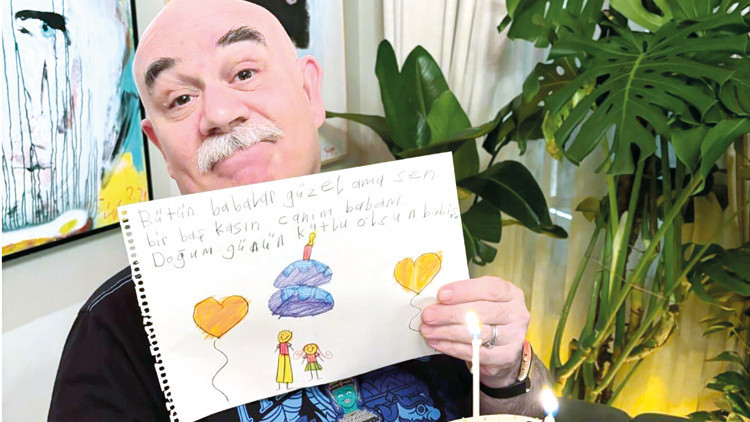 Bütün babalar güzel ama sen
bir baş kasın canım babam
Doğum günün kutlu olsun babiş